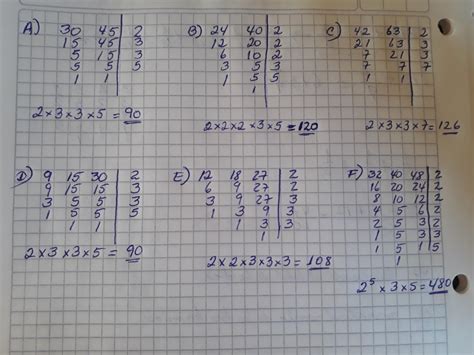 A) 30 45 2
15 45 3
5 15 3
5 5 5
1 1
2×3×3×5=90
B) 24 40 2
12 20 2
6 10 2
3 5 3
1 5 5
1
2×2×2×3×5=120
C) 42 63 2
21 63 3
7 21 3
7 7 7
1 1
2×3×3×7=126
D) 9 15 30 2
9 15 15 3
3 5 5 3
1 5 5 5
1 1
2×3×3×5=90
E) 12 18 27 2
6 9 27 2
3 9 27 3
1 3 9 3
1 3 3
1
2×2×3×3×3=108
F) 32 40 48 2
16 20 24 2
8 10 12 2
4 5 6 2
2 5 3 2
1 5 3 3
1 5 1 5
1
2⁵×3×5=480